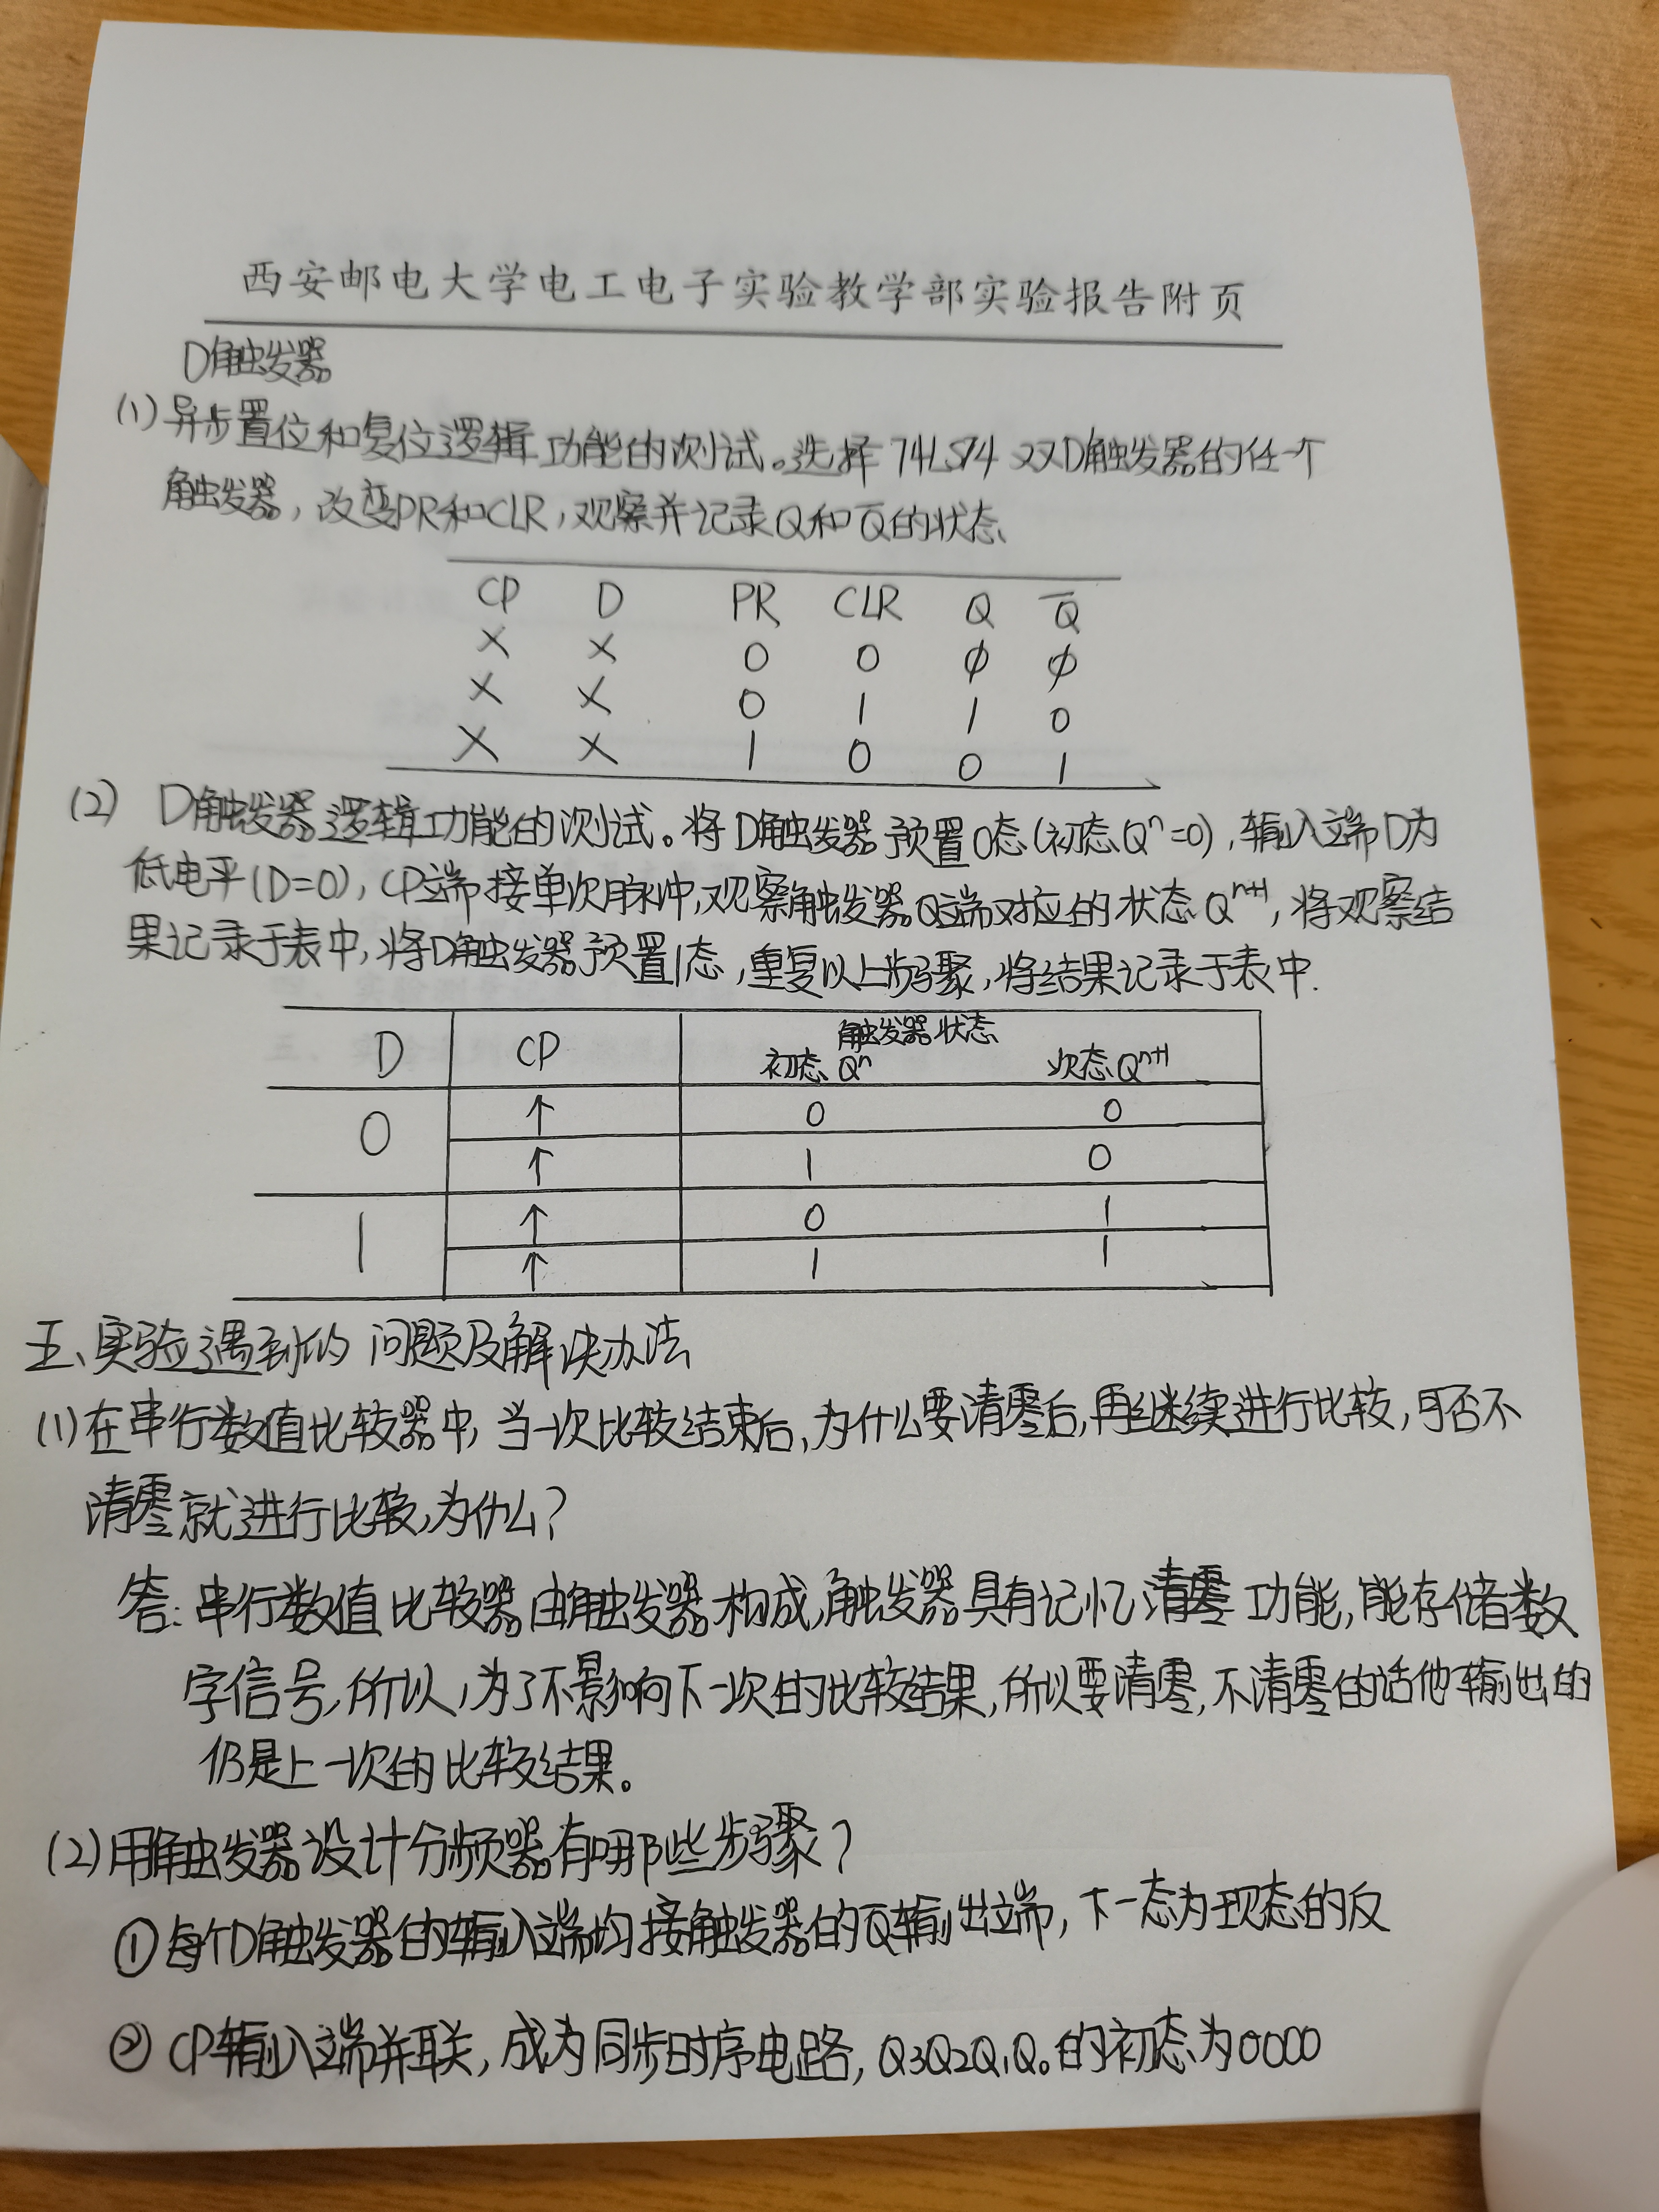 西安邮电大学电工电子实验教学部实验报告附页
D触发器
(1) 异步置位和复位逻辑功能的测试。选择74LS74双D触发器的任一个
触发器，改变PR和CLR，观察并记录Q和Q̅的状态
CP D PR CLR Q Q̅
× × 0 0 φ φ
× × 0 1 1 0
× × 1 0 0 1
(2) D触发器逻辑功能的测试。将D触发器预置0态(初态Qⁿ=0)，输入端D为
低电平(D=0)，CP端接单次脉冲，观察触发器Q端对应的状态Qⁿ⁺¹，将观察结
果记录于表中，将D触发器预置1态，重复以上步骤，将结果记录于表中.
触发器状态
D CP 初态Qⁿ 次态Qⁿ⁺¹
0 ↑ 0 0
↑ 1 0
1 ↑ 0 1
↑ 1 1
五、实验遇到的问题及解决办法
(1) 在串行数值比较器中，当一次比较结束后，为什么要清零后，再继续进行比较，可否不
清零就进行比较，为什么？
答：串行数值比较器由触发器构成，触发器具有记忆清零功能，能存储数
字信号，所以，为了不影响下一次的比较结果，所以要清零，不清零的话他输出的
仍是上一次的比较结果。
(2) 用触发器设计分频器有哪些步骤？
① 每个D触发器的输入端均接触发器的Q̅输出端，下一态为现态的反
② CP输入端并联，成为同步时序电路，Q₃Q₂Q₁Q₀的初态为0000